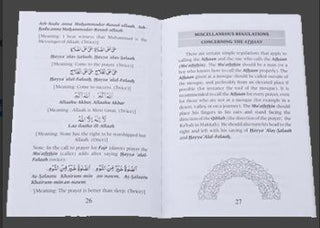 Ash-hadu anna Muḥammadar-Rasool-ullaah. Ash-
hadu anna Muḥammadar-Rasool-ullaah.
[Meaning: I bear witness that Muhammad is the
Messenger of Allaah. (Twice)]
حَيَّ عَلَى الصَّلَاةِ حَيَّ عَلَى الصَّلَاةِ
Ḥayya 'alaṣ-Ṣalaah. Ḥayya 'alaṣ-Ṣalaah
[Meaning: Come to the prayer. (Twice)]
حَيَّ عَلَى الْفَلَاحِ حَيَّ عَلَى الْفَلَاحِ
Ḥayya 'alal-Falaaḥ. Ḥayya 'alal-Falaaḥ
[Meaning: Come to success. (Twice)]
اَللهُ أَكْبَرُ اَللهُ أَكْبَرُ
Allaahu Akbar Allaahu Akbar
[Meaning: Allaah is Most Great. (Twice)]
لَا إِلَهَ إِلَّا اللهُ
Laa ilaaha ill-Allaah
[Meaning: None has the right to be worshipped but
Allaah. (Once)]
Note: In the call to prayer for Fajr (dawn) prayer the
Mu'adhdhin (caller) adds after saying Ḥayya 'alal-
Falaaḥ (twice):
الصَّلَاةُ خَيْرٌ مِّنَ النَّوْمِ الصَّلَاةُ خَيْرٌ مِّنَ النَّوْمِ
Aṣ-Ṣalaatu Khairum-min an-nawm. Aṣ-Ṣalaatu
Khairum-min an-nawm.
[Meaning: The prayer is better than sleep. (Twice)]
26
MISCELLANEOUS REGULATIONS
CONCERNING THE ADHAAN
There are certain simple regulations that apply to
calling the Adhaan and the one who calls the Adhaan
(Mu'adhdhin). The Mu'adhdhin should be a man (or a
boy who knows how to call the Adhaan properly). The
Adhaan given at a mosque should be called outside of
the mosque, and preferably from an elevated place if
possible (for instance the roof of the mosque). It is
recommended to call the Adhaan for every prayer, even
for those who are not at a mosque (for example in a
desert, valley, or on a journey). The Mu'adhdhin should
place his fingers in his ears and stand facing the
direction of the Qiblah (the direction of the prayer, the
Ka'bah in Makkah). He should also turn his head to the
right and left with his saying of Ḥayya 'Alaṣ-Ṣalaah
and Ḥayya 'Alal-Falaaḥ.
27